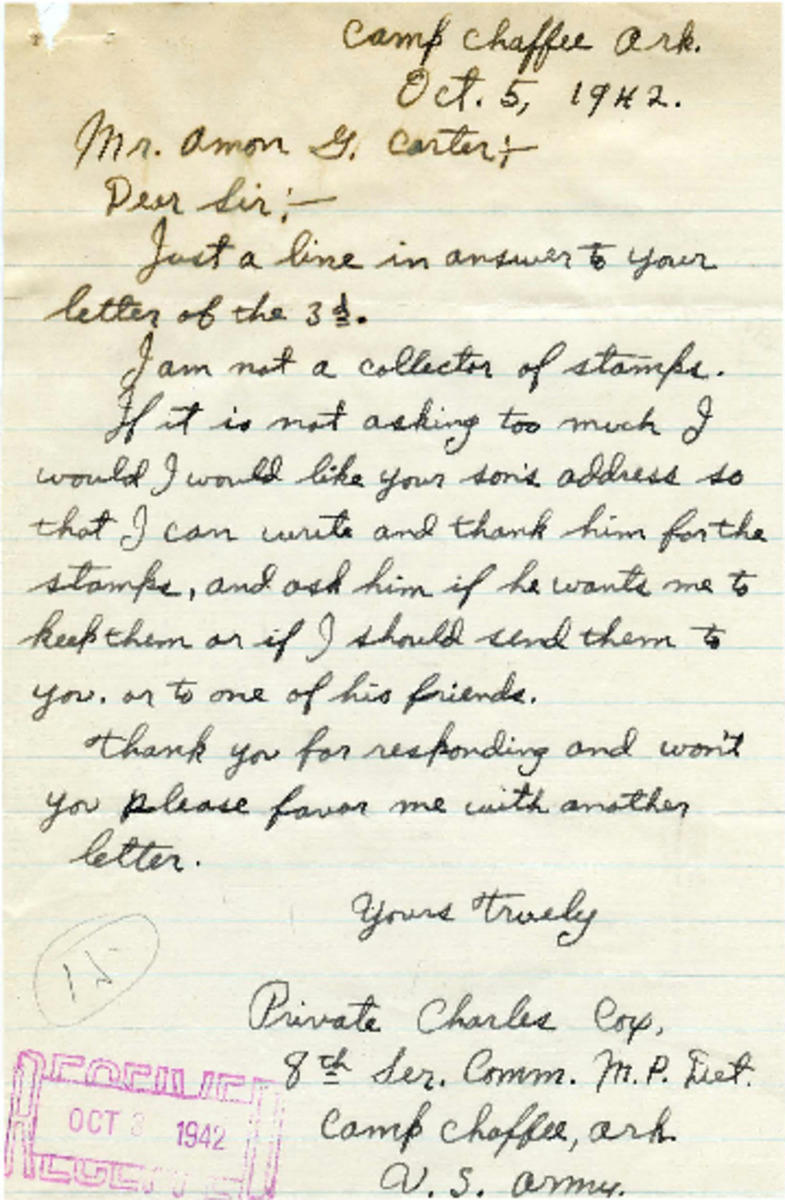 Camp Chaffee Ark.
Oct. 5, 1942.
Mr. Amon G. Carter;—
Dear Sir;—
Just a line in answer to your
letter of the 3d.
I am not a collector of stamps.
If it is not asking too much I
would I would like your son's address so
that I can write and thank him for the
stamps, and ask him if he wants me to
keep them or if I should send them to
you. or to one of his friends.
Thank you for responding and won't
you please favor me with another
letter.
Yours Truely
Private Charles Cox,
8th Ser. Comm. M.P. Det.
Camp Chaffee, Ark.
U. S. Army.
RECEIVED
OCT 3 1942
RECEIVED